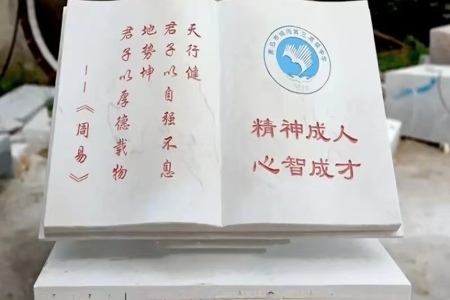 天行健
君子以自强不息
地势坤
君子以厚德载物
——《周易》
精神成人
心智成才